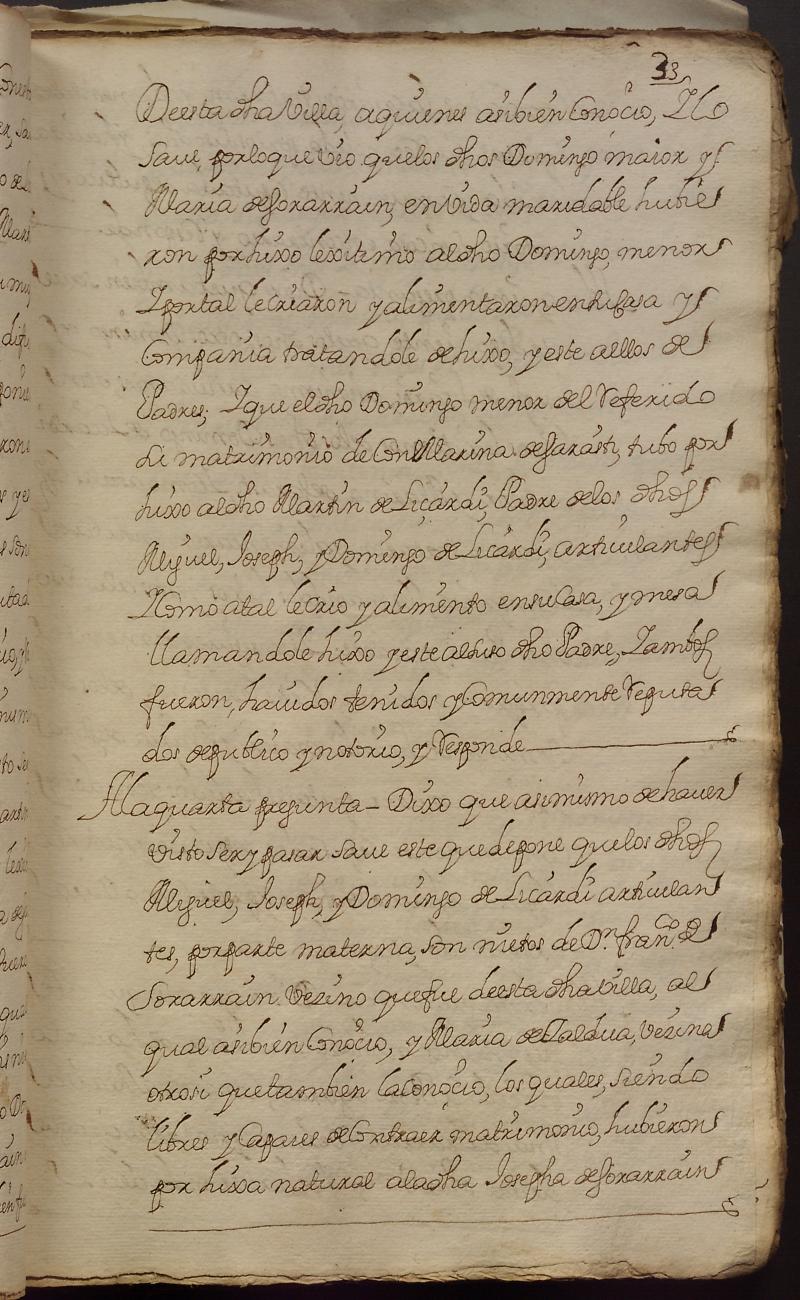 33
Deesta dha Villa, aquienes asibien Conocio, Y lo
Save por loque vio quelos dhos Domingo maior y
Maria de Sorarrain, en Vida maridable hubie
ron por hixo lexitimo al dho Domingo, menor
Y por tal le Criaron y alimentaron en su Casa y
Compania tratandole de hixo, y este a ellos de
Padres; Y que el dho Domingo menor del Referido
su matrimonio de Con Marina de Sarasti, tubo por
hixo al dho Martin de Licardi, Padre de los dhos
Miguel, Joseph, y Domingo de Licardi, articulantes
Y Como atal le Crio y alimento en su Casa, y mesa
llamandole hixo y este al suso dho Padre, Y ambos
fueron, havidos tenidos y Comunmente Reputa
dos de publico y notorio, y Responde
A la quarta pregunta - Dixo que asimismo de haver
visto ser y pasar save este que depone quelos dhos
Miguel, Joseph, y Domingo de Licardi articulan
tes, por parte materna, son nietos de Dn. Franco. de
Sorarrain Vezino que fue deesta dha Villa, al
qual asibien Conocio, y Maria de Zaldua, Vezina
otrosi que tambien la Conocio, los quales, siendo
libres y Capaces de Contraer matrimonio, hubieron
por hixa natural a la dha Josepha de Sorarrain